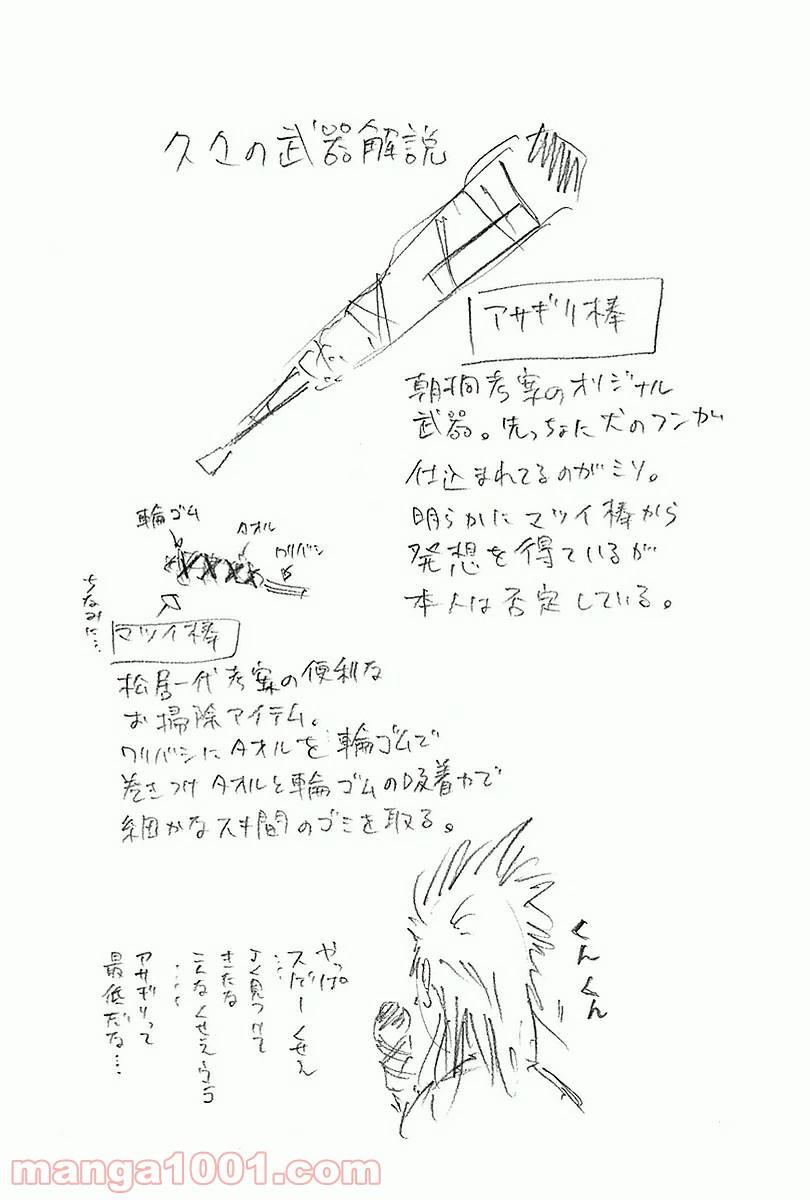 久々の武器解説
アサギリ棒
朝桐考案のオリジナル
武器。先っちょに犬のフンが
仕込まれてるのがミソ。
明らかにマツイ棒から
発想を得ているが
本人は否定している。
輪ゴム
タオル
ワリバシ
ちなみに…
マツイ棒
松居一代考案の便利な
お掃除アイテム。
ワリバシにタオルを輪ゴムで
巻きつけタオルと輪ゴムの吸着力で
細かなスキ間のゴミを取る。
くんくん
やっぱ
スゲーくせえ
……
よく見つけて
きたな
こんなくせえうち
……
アサギリって
最低だな…
manga1001.com